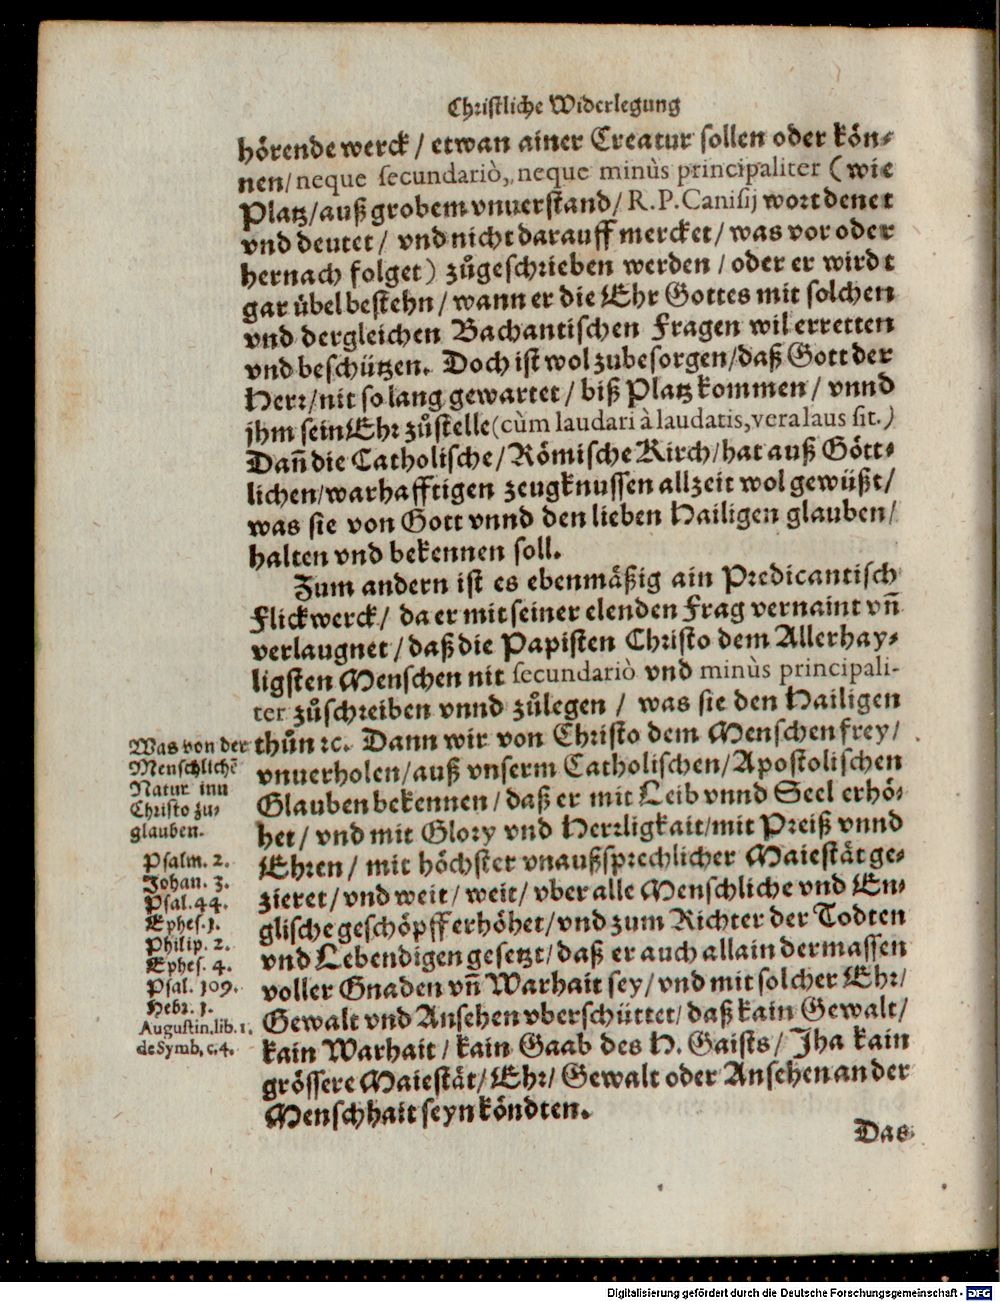 Christliche Widerlegung
hörende werck / etwan ainer Creatur sollen oder kön-
nen / neque secundariò, neque minùs principaliter (wie
Platz / auß grobem vnuerstand / R. P. Canisij wort denet
vnd deutet / vnd nicht darauff mercket / was vor oder
hernach folget) zůgeschrieben werden / oder er wirdt
gar übel bestehn / wann er die Ehr Gottes mit solchen
vnd dergleichen Bachantischen Fragen wil erretten
vnd beschützen. Doch ist wol zubesorgen / daß Gott der
Herr / nit so lang gewartet / biß Platz kommen / vnnd
jhm sein Ehr zůstelle (cùm laudari à laudatis, vera laus sit.)
Dañ die Catholische / Römische Kirch / hat auß Gött-
lichen / warhafftigen zeugknussen allzeit wol gewüßt /
was sie von Gott vnnd den lieben Hailigen glauben /
halten vnd bekennen soll.
Zum andern ist es ebenmäßig ain Predicantisch
Flickwerck / da er mit seiner elenden Frag vernaint vñ
verlaugnet / daß die Papisten Christo dem Allerhay-
ligsten Menschen nit secundariò vnd minùs principali-
ter zůschreiben vnnd zůlegen / was sie den Hailigen
thůn ꝛc. Dann wir von Christo dem Menschen frey /
vnuerholen / auß vnserm Catholischen / Apostolischen
Glauben bekennen / daß er mit Leib vnnd Seel erhö-
het / vnd mit Glory vnd Herrligkait / mit Preiß vnnd
Ehren / mit höchster vnaußsprechlicher Maiestät ge-
zieret / vnd weit / weit / vber alle Menschliche vnd En-
glische geschöpff erhöhet / vnd zum Richter der Todten
vnd Lebendigen gesetzt / daß er auch allain dermassen
voller Gnaden vñ Warhait sey / vnd mit solcher Ehr /
Gewalt vnd Ansehen vberschüttet / daß kain Gewalt /
kain Warhait / kain Gaab des H. Gaists / Jha kain
grössere Maiestät / Ehr / Gewalt oder Ansehen an der
Menschhait seyn köndten.
Das
Was von der
Menschlichẽ
Natur inn
Christo zu-
glauben.
Psalm. 2.
Johan. 3.
Psal. 44.
Ephes. 1.
Philip. 2.
Ephes. 4.
Psal. 109.
Hebr. 1.
Augustin. lib. 1.
de Symb. c. 4.
Digitalisierung gefördert durch die Deutsche Forschungsgemeinschaft - DFG